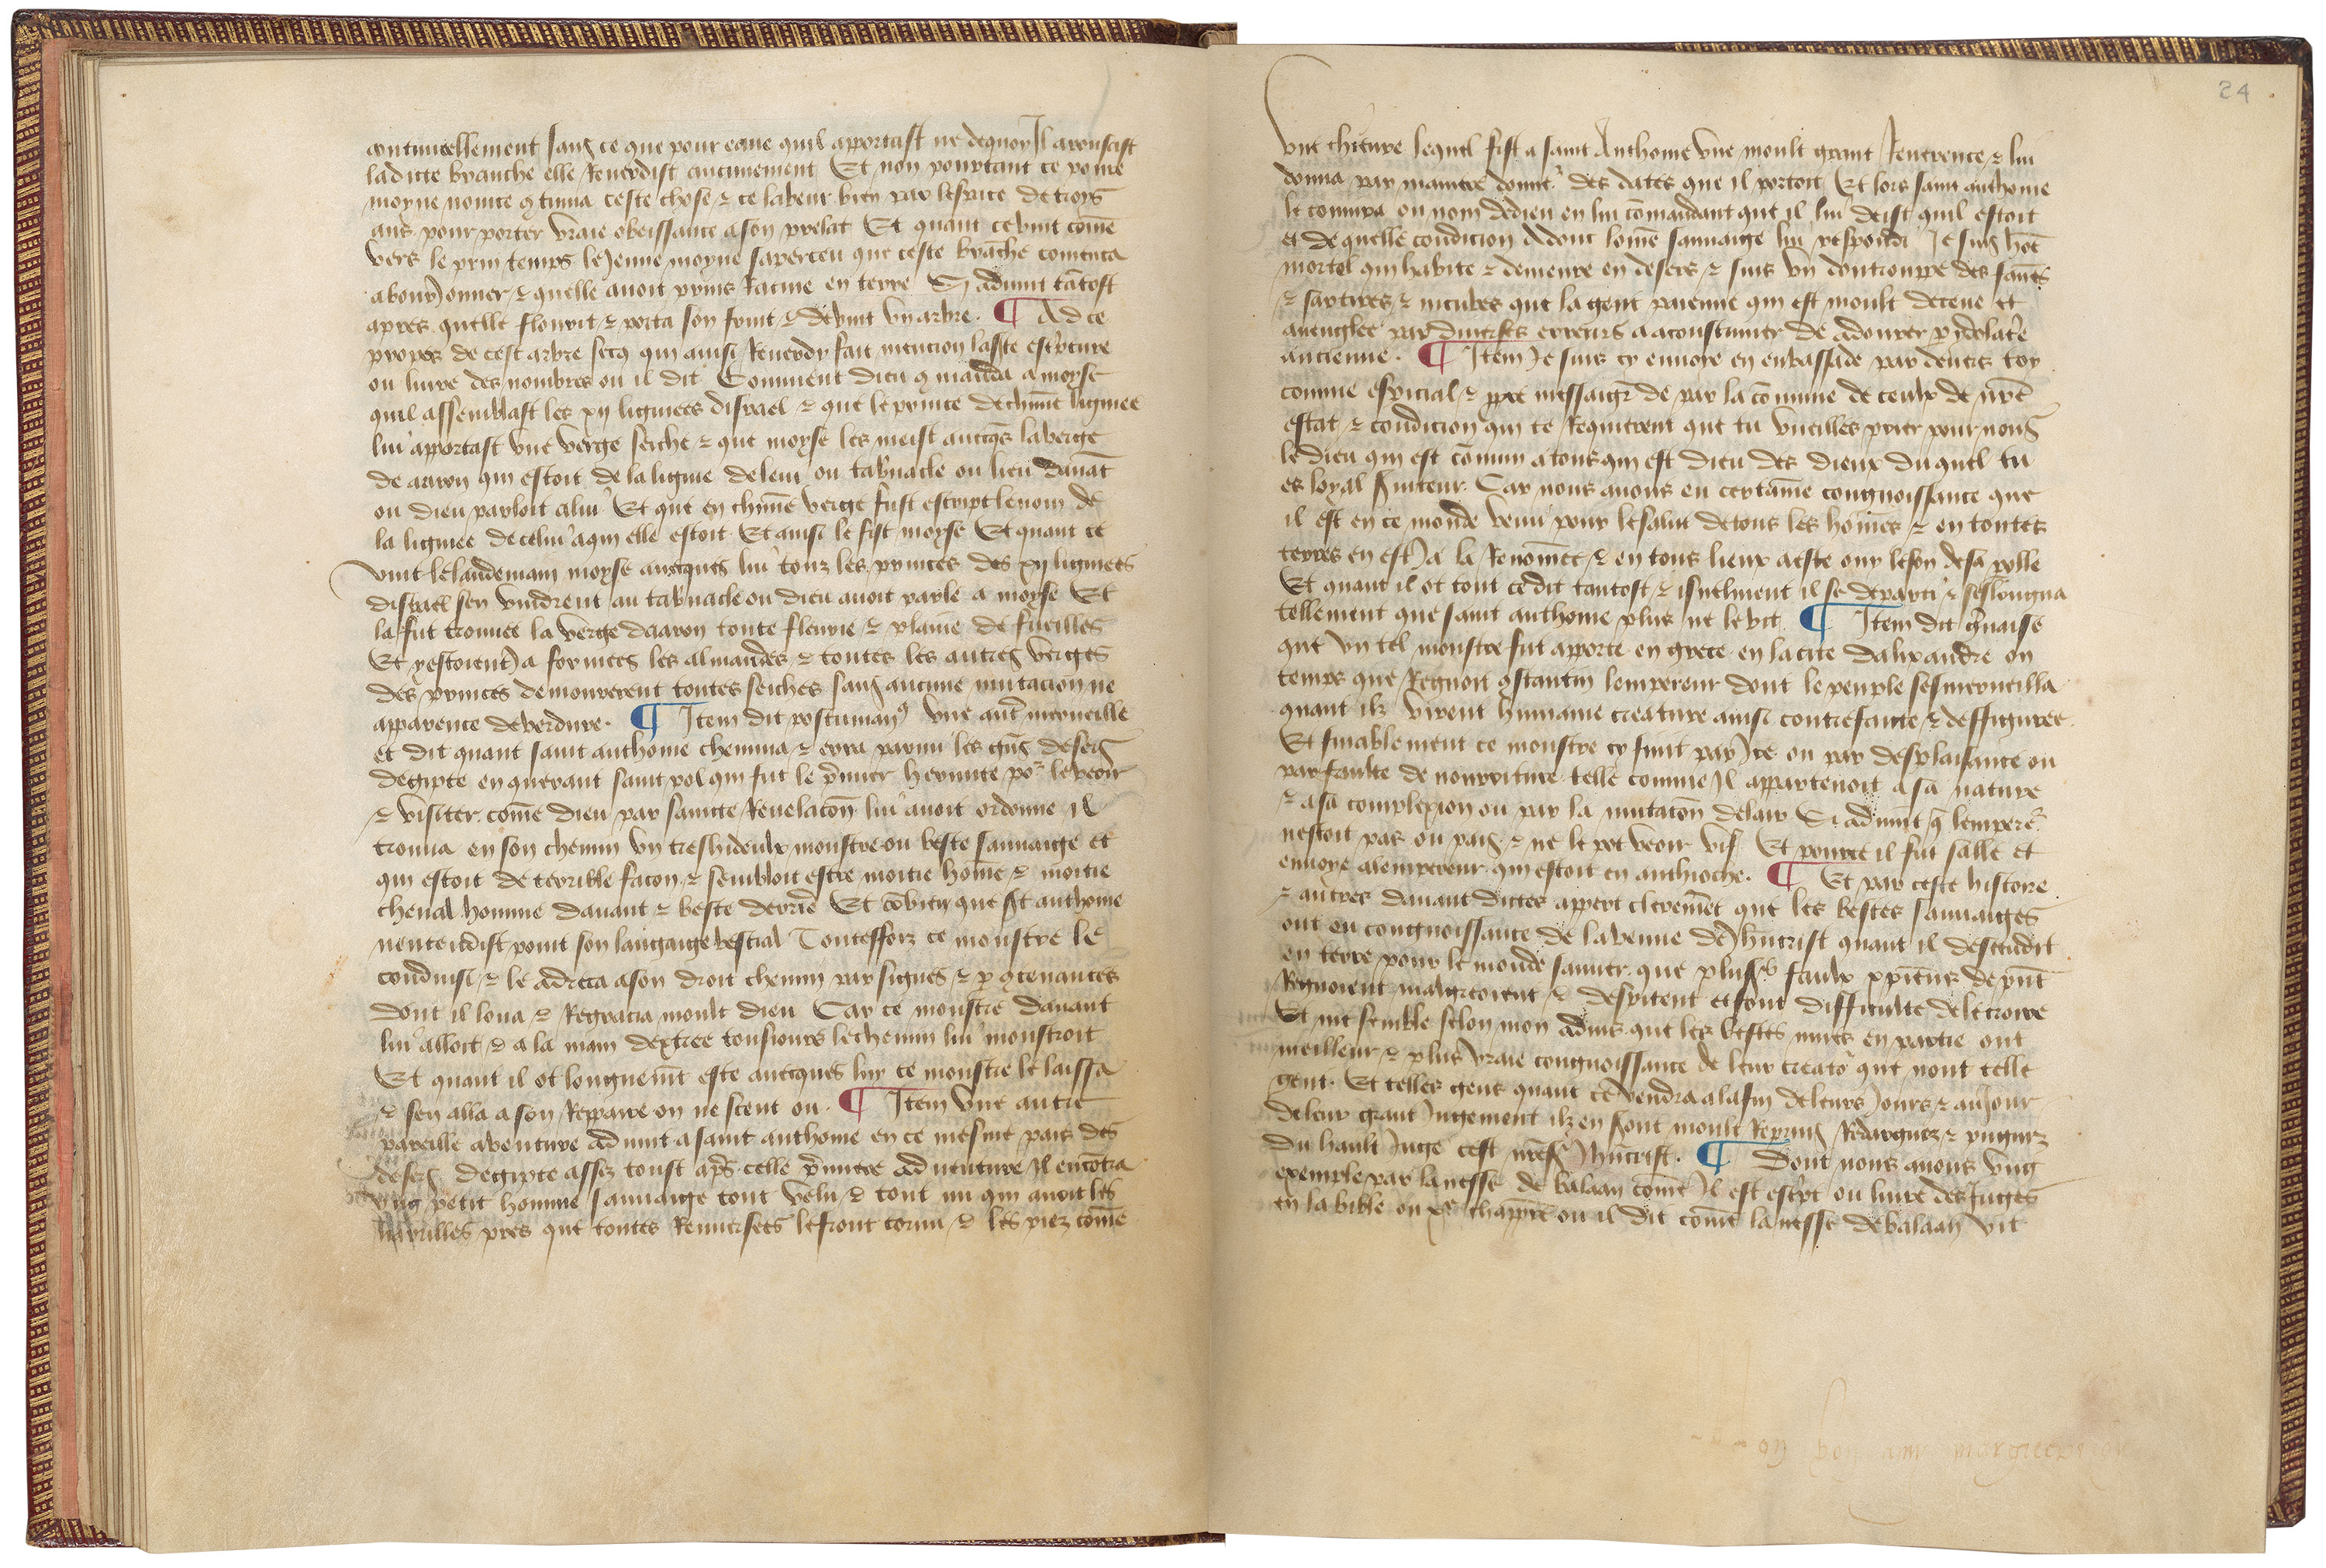 continuellement sans ce que pour eaue quil apportast ne dequoy Il arousast
ladicte branche elle Reuerdist aucunement Et non pourtant ce poure
moyne nouice 9tinua ceste chose & ce labeur bien par lespace de troys
ans pour porter vraie obeissance a son prelat Et quant ce vint come
vers le prin temps le Jenne moyne saperceu que ceste branche comenca
a bourJonner & quelle auoit prins Racine en terre Si aduint tatost
apres quelle flourit & porta son fruit & deuint vn arbre. ¶ Ad ce
propos de cest arbre secq qui ainsi Reuerdy fait mencion la ste escripture
ou liure des nombres ou il dit Comment dieu 9manda a moyse
quil assemblast les xij lignees disrael & que le prince de chune lignee
lui apportast vne verge seiche & que moyse les meist auecqs la verge
de aaron qui estoit de la lignie de leui ou tabnacle ou lieu dauat
ou dieu parloit a lui Et que en chune verge fust escript le nom de
la lignee de celui a qui elle estoit Et ainsi le fist moyse Et quant ce
vint lelandemain moyse auecques lui touz les princes des xij lignees
disrael sen vindrent au tabnacle ou dieu auoit parle a moyse Et
la fut trouuee la verge daaron toute fleurie & plaine de fueilles
Et y estoient Ja formees les almandes & toutes les autres verges
des princes demourerent toutes seiches sans aucune mutacion ne
apparence de verdure. ¶ Item dit postumian9 vne aut merueille
et dit quant saint anthoine chemina & erra parmi les gns desers
degipte en querant saint pol qui fut le pmier hermite por le veoir
& visiter come dieu par saincte Reuelacon lui auoit ordonne il
trouua en son chemin vn treshideulx monstre ou beste sauuaige et
qui estoit de terrible facon & sembloit estre moitie home & moitie
cheual homme dauant & beste derriere Et cobien que st anthoine
nentendist point son langaige bestial Toutesfoiz ce monstre le
conduisi & le adreca a son droit chemin par signes & p 9tenances
dont il loua & Regracia moult dieu Car ce monstre dauant
lui alloit & a la main dextre tousiours le chemin lui monstroit
Et quant il ot longuemt este auecques luy ce monstre le laissa
& sen alla a son Reppaire on ne scent ou. ¶ Item vne autre
pareille aventure aduint a saint anthoine en ce mesme pais des
desers degipte assez toust aps celle pmiere aduenture Il encotra
vng petit homme sauuaige tout velu & tout nu qui auoit les
narrilles pres que toutes Renuersees le front cornu & les piez come
24
vne chieure lequel fist a saint Anthoine vne moult grant Reuerence & lui
donna par maniere donnr des dates que il portoit Et lors saint anthoine
le coniura ou nom de dieu en lui comandant que il lui deist quil estoit
et de quelle condicion Adonc lome sauuaige lui respondi Je suis hoe
mortel qui habite & demeure en desers & suis vn dou trouppe des fanes
& satires & incubes que la gent paienne qui est moult deceue et
aueuglee par diuerses erreurs a acoustumer de adourer p ydolatre
ancienne. ¶ Item Je suis cy enuoye en enbassade par deuers toy
comme especial & ppre messaigr de par la comune de ceulx de nre
estat & condicion qui te Requierent que tu vueilles prier pour nous
le dieu qui est comun a tous qui est dieu des dieux du quel tu
es loyal suiteur. Car nous auons eu certaine congnoissance que
il est en ce monde venu pour le salut de tous les homes & en toutes
terres en est Ja la Renomee & en tous lieux a este ouy le son de sa polle
Et quant il ot tout ce dit tantost & isnelment il se departi & seslongna
tellement que saint anthoine plus ne le vit ¶ Item dit geruaise
que vn tel monstre fut apporte en grece en la cite dalixandre ou
temps que Regnoit 9stantin lempereur dont le peuple sesmerueilla
quant ilz virent humaine creature ainsi contrefaicte & deffiguree.
Et finablement ce monstre cy finit par Ire ou par desplaisance ou
par faulte de nourriture telle comme Il appartenoit a sa nature
& a sa complexion ou par la mutacon de lair Si aduint q lempere
nestoit pas ou pais & ne le pot veoir vif Et pource il fut salle et
enuoye a lempereur qui estoit en anthioche. ¶ Et par ceste histoire
& autres dauant dictes appert cleremet que les bestes sauuaiges
ont eu congnoissance de la venue de Jhucrist quant il descendit
en terre pour le monde sauuer que plusrs faulx xpiens de pnt
Regnoient malgreoient & despitent et font difficulte de le croire
Et me semble selon mon aduis que les bestes mues en partie ont
meilleur & plus vraie congnoissance de leur creator que nont telle
gent. Et telles gens quant ce vendra a la fin de leurs Jours & au Jour
de leur grant Jugement ilz en sont moult Reprins Redarguez & pugniz
du hault Juge cest nresr Jhucrist. ¶ Dont nous auons vng
exemple par lanesse de balaan come Il est escpt ou liure des Juges
en la bible ou xe chappre ou il dit come lanesse de balaan vit